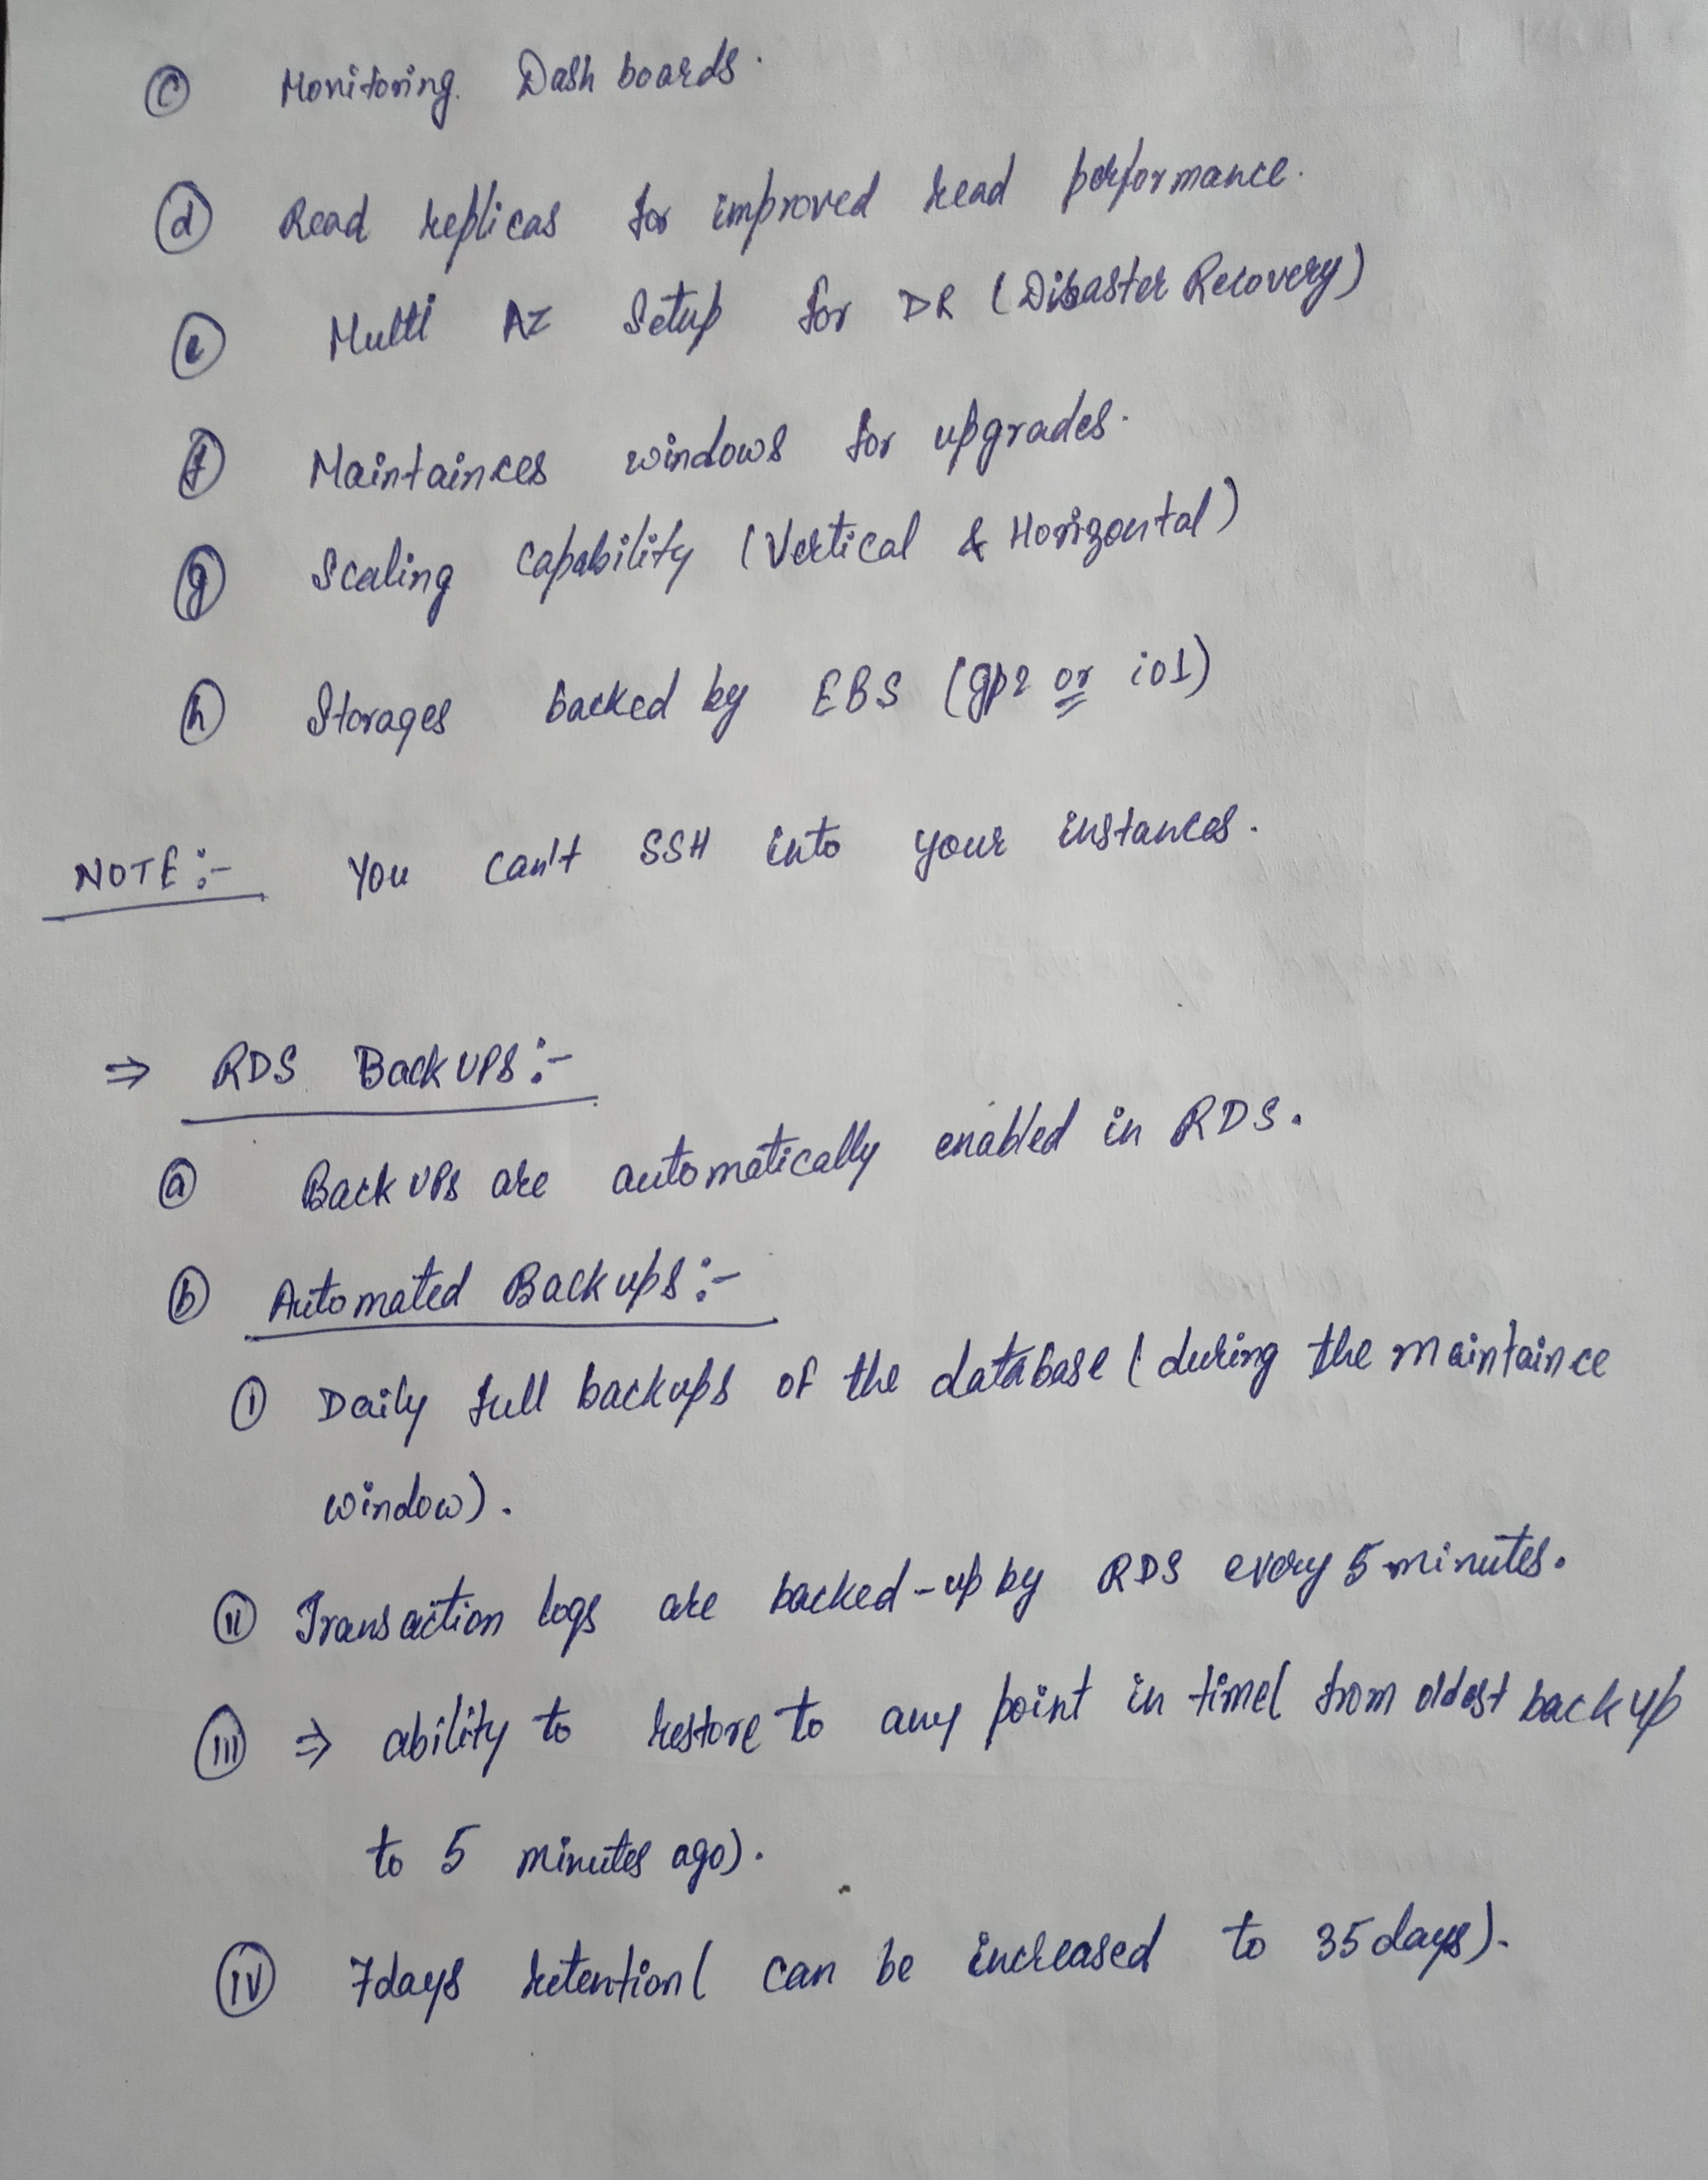 ⓒ Monitoring. Dash boards.
ⓓ Read replicas for improved read performance.
ⓔ Multi AZ Setup for DR (Disaster Recovery)
ⓕ Maintainces windows for upgrades.
ⓖ Scaling capability (Vertical & Horizontal)
ⓗ Storages backed by EBS (gp2 or io1)
NOTE:- You can't SSH into your instances.
⇒ RDS Back UPs:-
ⓐ Back UPs are automatically enabled in RDS.
ⓑ Automated Back ups:-
ⓘ Daily full backups of the database (during the maintaince
window).
(ii) Transaction logs are backed-up by RDS every 5 minutes.
(iii) ⇒ ability to restore to any point in time( from oldest back up
to 5 minutes ago).
(iv) 7days retention( can be increased to 35days).